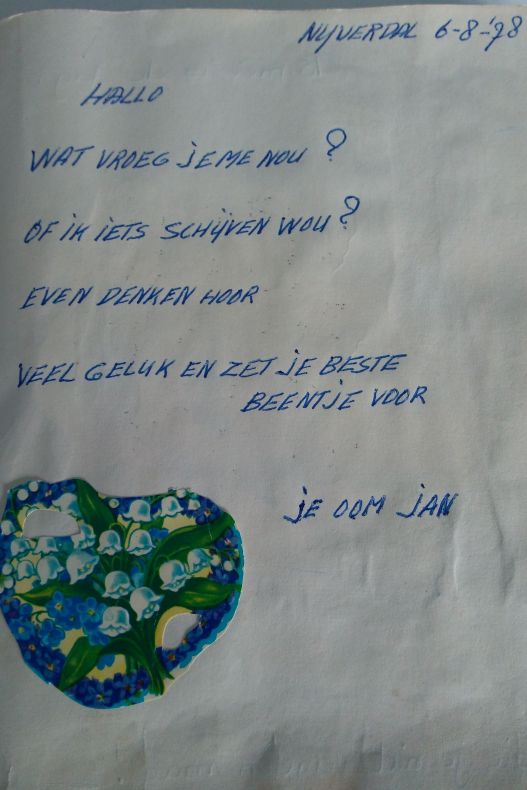 NIJVERDAL 6-8-'78
HALLO
WAT VROEG JE ME NOU?
OF IK IETS SCHIJVEN WOU?
EVEN DENKEN HOOR
VEEL GELUK EN ZET JE BESTE
BEENTJE VOOR
JE OOM JAN